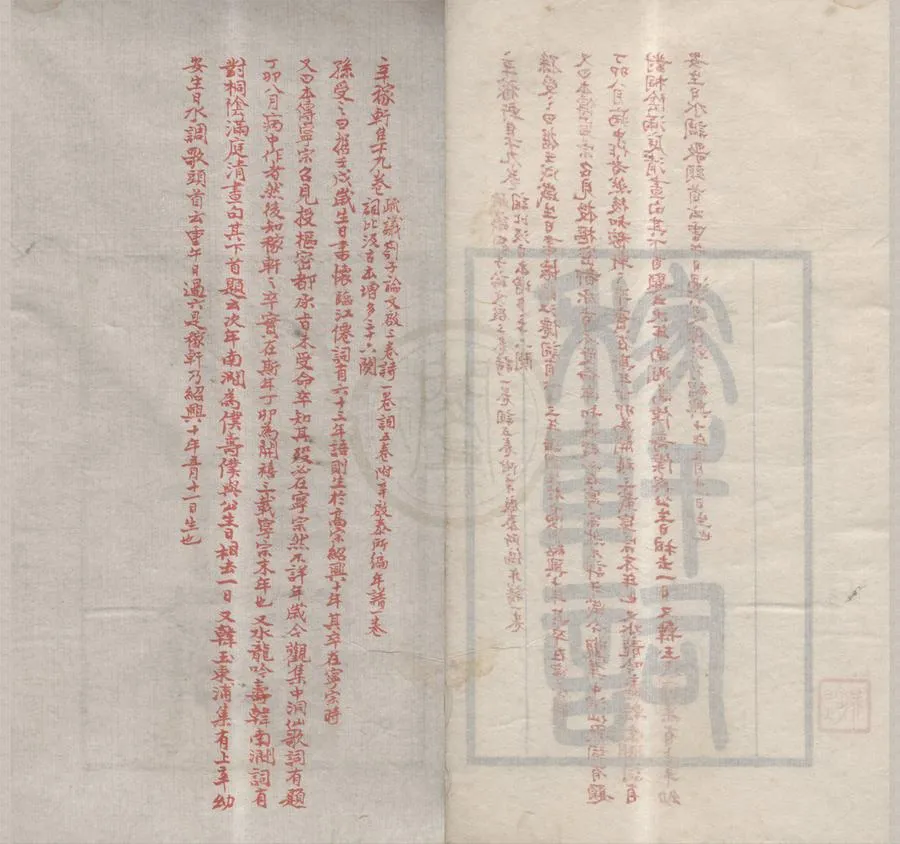 辛稼軒集十九卷
疏議劄子論文啟三卷詩一卷詞五卷附辛啟泰所編年譜一卷
詞比汲古本增多三十六闋
孫受之曰舊壬戌歲生日書懷臨江僊詞有六十三年語則生於高宗紹興十年其卒在寧宗時
又曰本傳寧宗召見授樞密都承旨未受命卒知其歿必在寧宗然不詳年歲今觀集中洞仙歌詞有題
丁卯八月病中作者然後知稼軒之卒實在斯年丁卯為開禧三載寧宗末年也又水龍吟壽韓南澗詞有
對桐陰滿庭清晝句其下首題云次年南澗為僕壽僕與公生日相去一日又韓玉東浦集有上辛幼
安生日水調歌頭首云重午日過六是稼軒乃紹興十年五月十一日生也